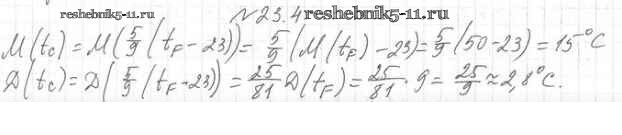 reshebnik5-11.ru №23.4 reshebnik5-11.ru
M(t_C) = M(5/9(t_F - 23)) = 5/9(M(t_F) - 23) = 5/9(50 - 23) = 15°C
D(t_C) = D(5/9(t_F - 23)) = 25/81 D(t_F) = 25/81 · 9 = 25/9 ≈ 2,8°C.